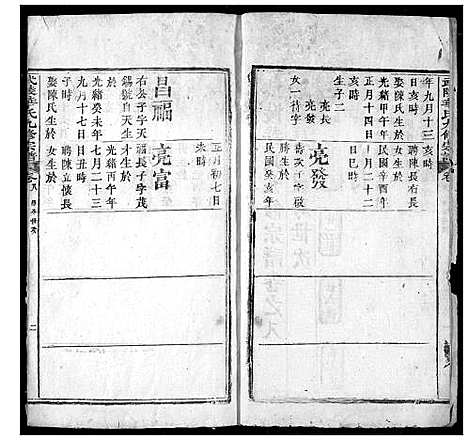 年九月十三亥時
日亥時 聘陳有長
娶陳氏生於 女生於
光緒甲午年 民國辛酉年
正月十四日 月二十二
亥時 日巳時
生子二
亮長
亮敬
女一待字
亮發
民國癸亥年
正月初七日
未時
昌福 亮富
右公子字天 福長子字茂
錫號自天 才生於
生於 光緒丙午年
光緒癸未年 七月二十三
九月十七日 日丑時
子時 聘陳立懷長
娶陳氏生於 女生於
武陵
氏九修宗譜
卷八
二